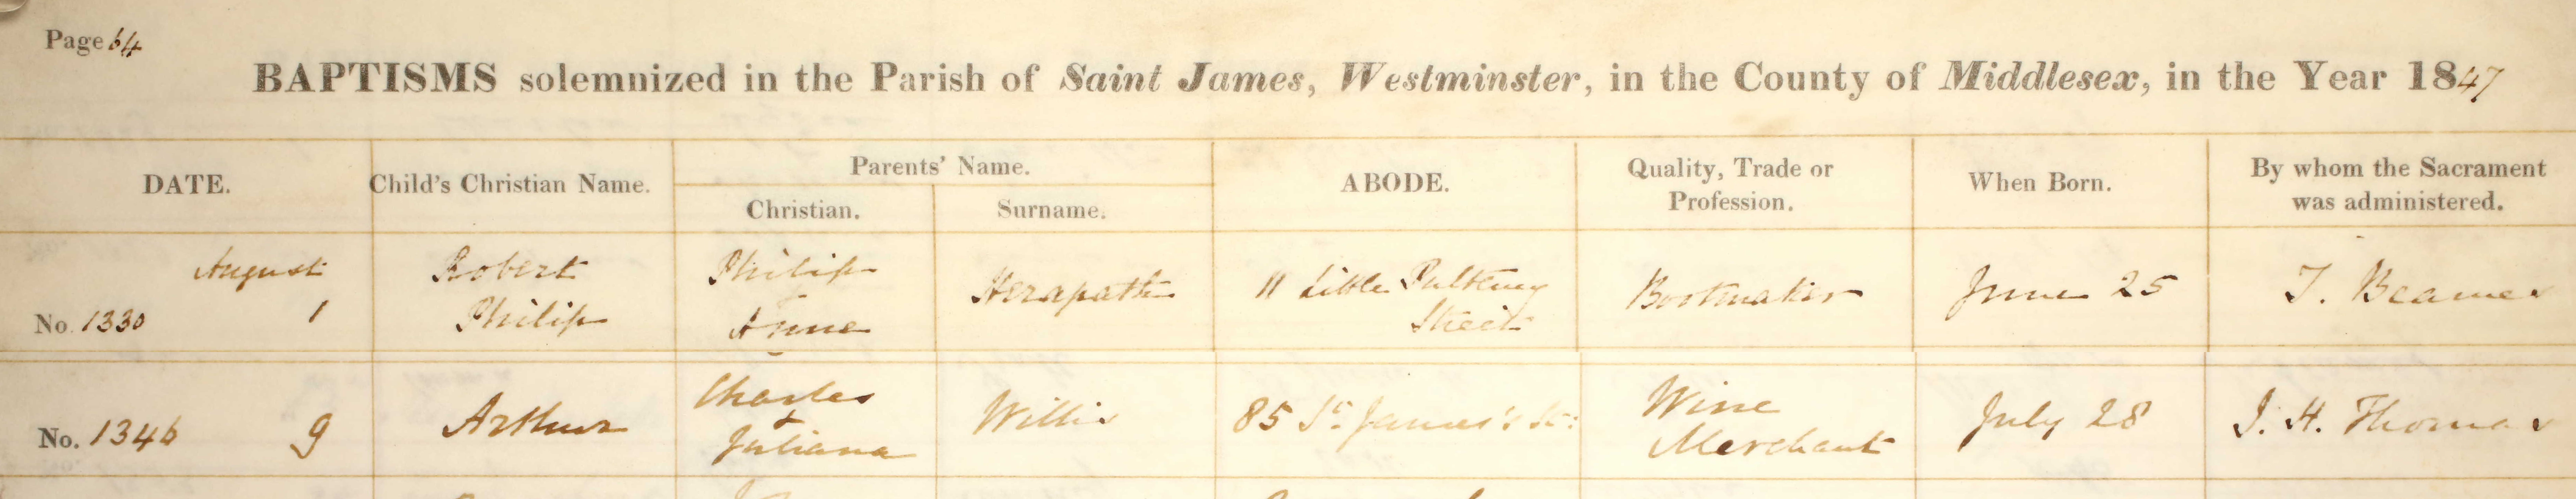 Page 64
BAPTISMS solemnized in the Parish of Saint James, Westminster, in the County of Middlesex, in the Year 1847
DATE.
Child's Christian Name.
Parents' Name.
Christian.
Surname.
ABODE.
Quality, Trade or
Profession.
When Born.
By whom the Sacrament
was administered.
August
1
No. 1330
Robert
Philip
Philip
&
Anne
Herapath
11 Little Pultney
Street
Bootmaker
June 25
T. Beames
No. 1346
9
Arthur
Charles
&
Juliana
Willis
85 St. James's St:
Wine
Merchant
July 28
J. H. Thomas